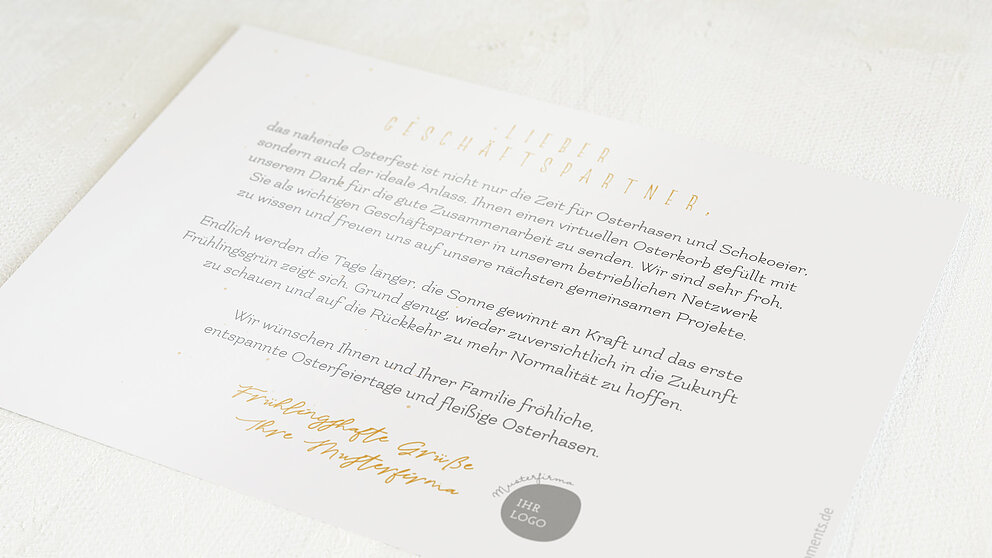 LIEBER
GESCHÄFTSPARTNER,
das nahende Osterfest ist nicht nur die Zeit für Osterhasen und Schokoeier,
sondern auch der ideale Anlass, Ihnen einen virtuellen Osterkorb gefüllt mit
unserem Dank für die gute Zusammenarbeit zu senden. Wir sind sehr froh,
Sie als wichtigen Geschäftspartner in unserem betrieblichen Netzwerk
zu wissen und freuen uns auf unsere nächsten gemeinsamen Projekte.
Endlich werden die Tage länger, die Sonne gewinnt an Kraft und das erste
Frühlingsgrün zeigt sich. Grund genug, wieder zuversichtlich in die Zukunft
zu schauen und auf die Rückkehr zu mehr Normalität zu hoffen.
Wir wünschen Ihnen und Ihrer Familie fröhliche,
entspannte Osterfeiertage und fleißige Osterhasen.
Frühlingshafte Grüße
Ihre Musterfirma
Musterfirma
IHR
LOGO